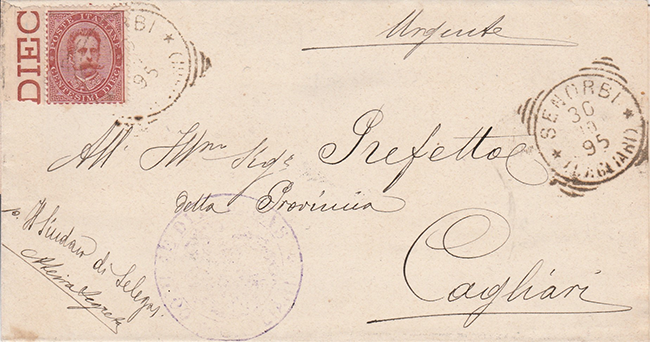 DIEC
POSTE ITALIANE
CENTESIMI DIECI
RBI
95
Urgente
SENORBI
30
10
95
(CAGLIARI)
All' Illmo Sigr Prefetto
della Provincia
Cagliari
Il Sindaco di Selegas